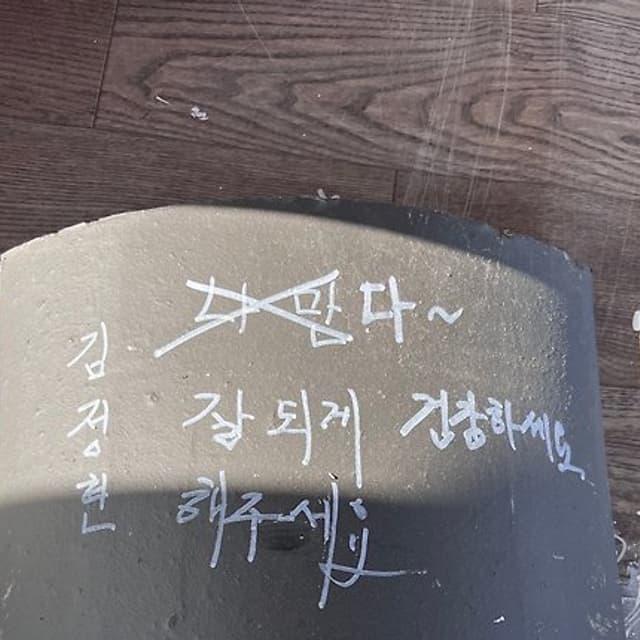 다~
김정현
잘 되게 건강하세요
해주세요